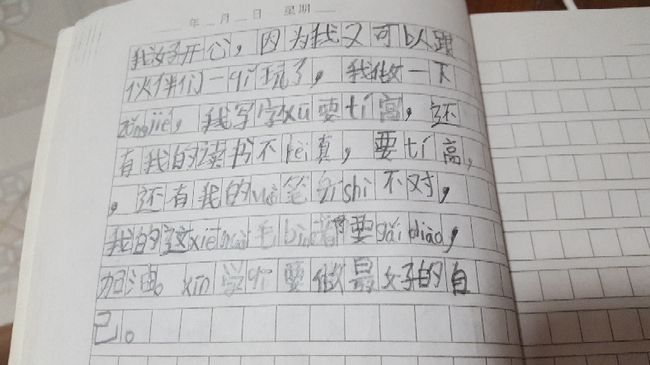 年 月 日 星期
我好开心，因为我又可以跟
伙伴们一qǐ玩了，我做一下
zǒngjié，我写字xū要tí高，还
有我的读书不rèn真，要tí高，
，还有我的 笔zīshì不对，
我的这xiē 毛bìng都要gǎi diào，
加油。xīn学qī要做最好的自
己。